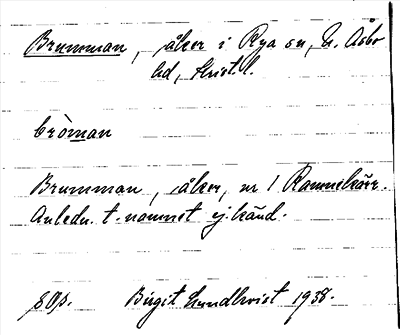 Brumman, åker i Rya sn, N. Åsbo
hd, Krist. l.
bròman
Brumman, åker, nr 1 Rammekärr.
Anledn. t. namnet ej känd.
sOp. Birgit Lundkvist 1938.